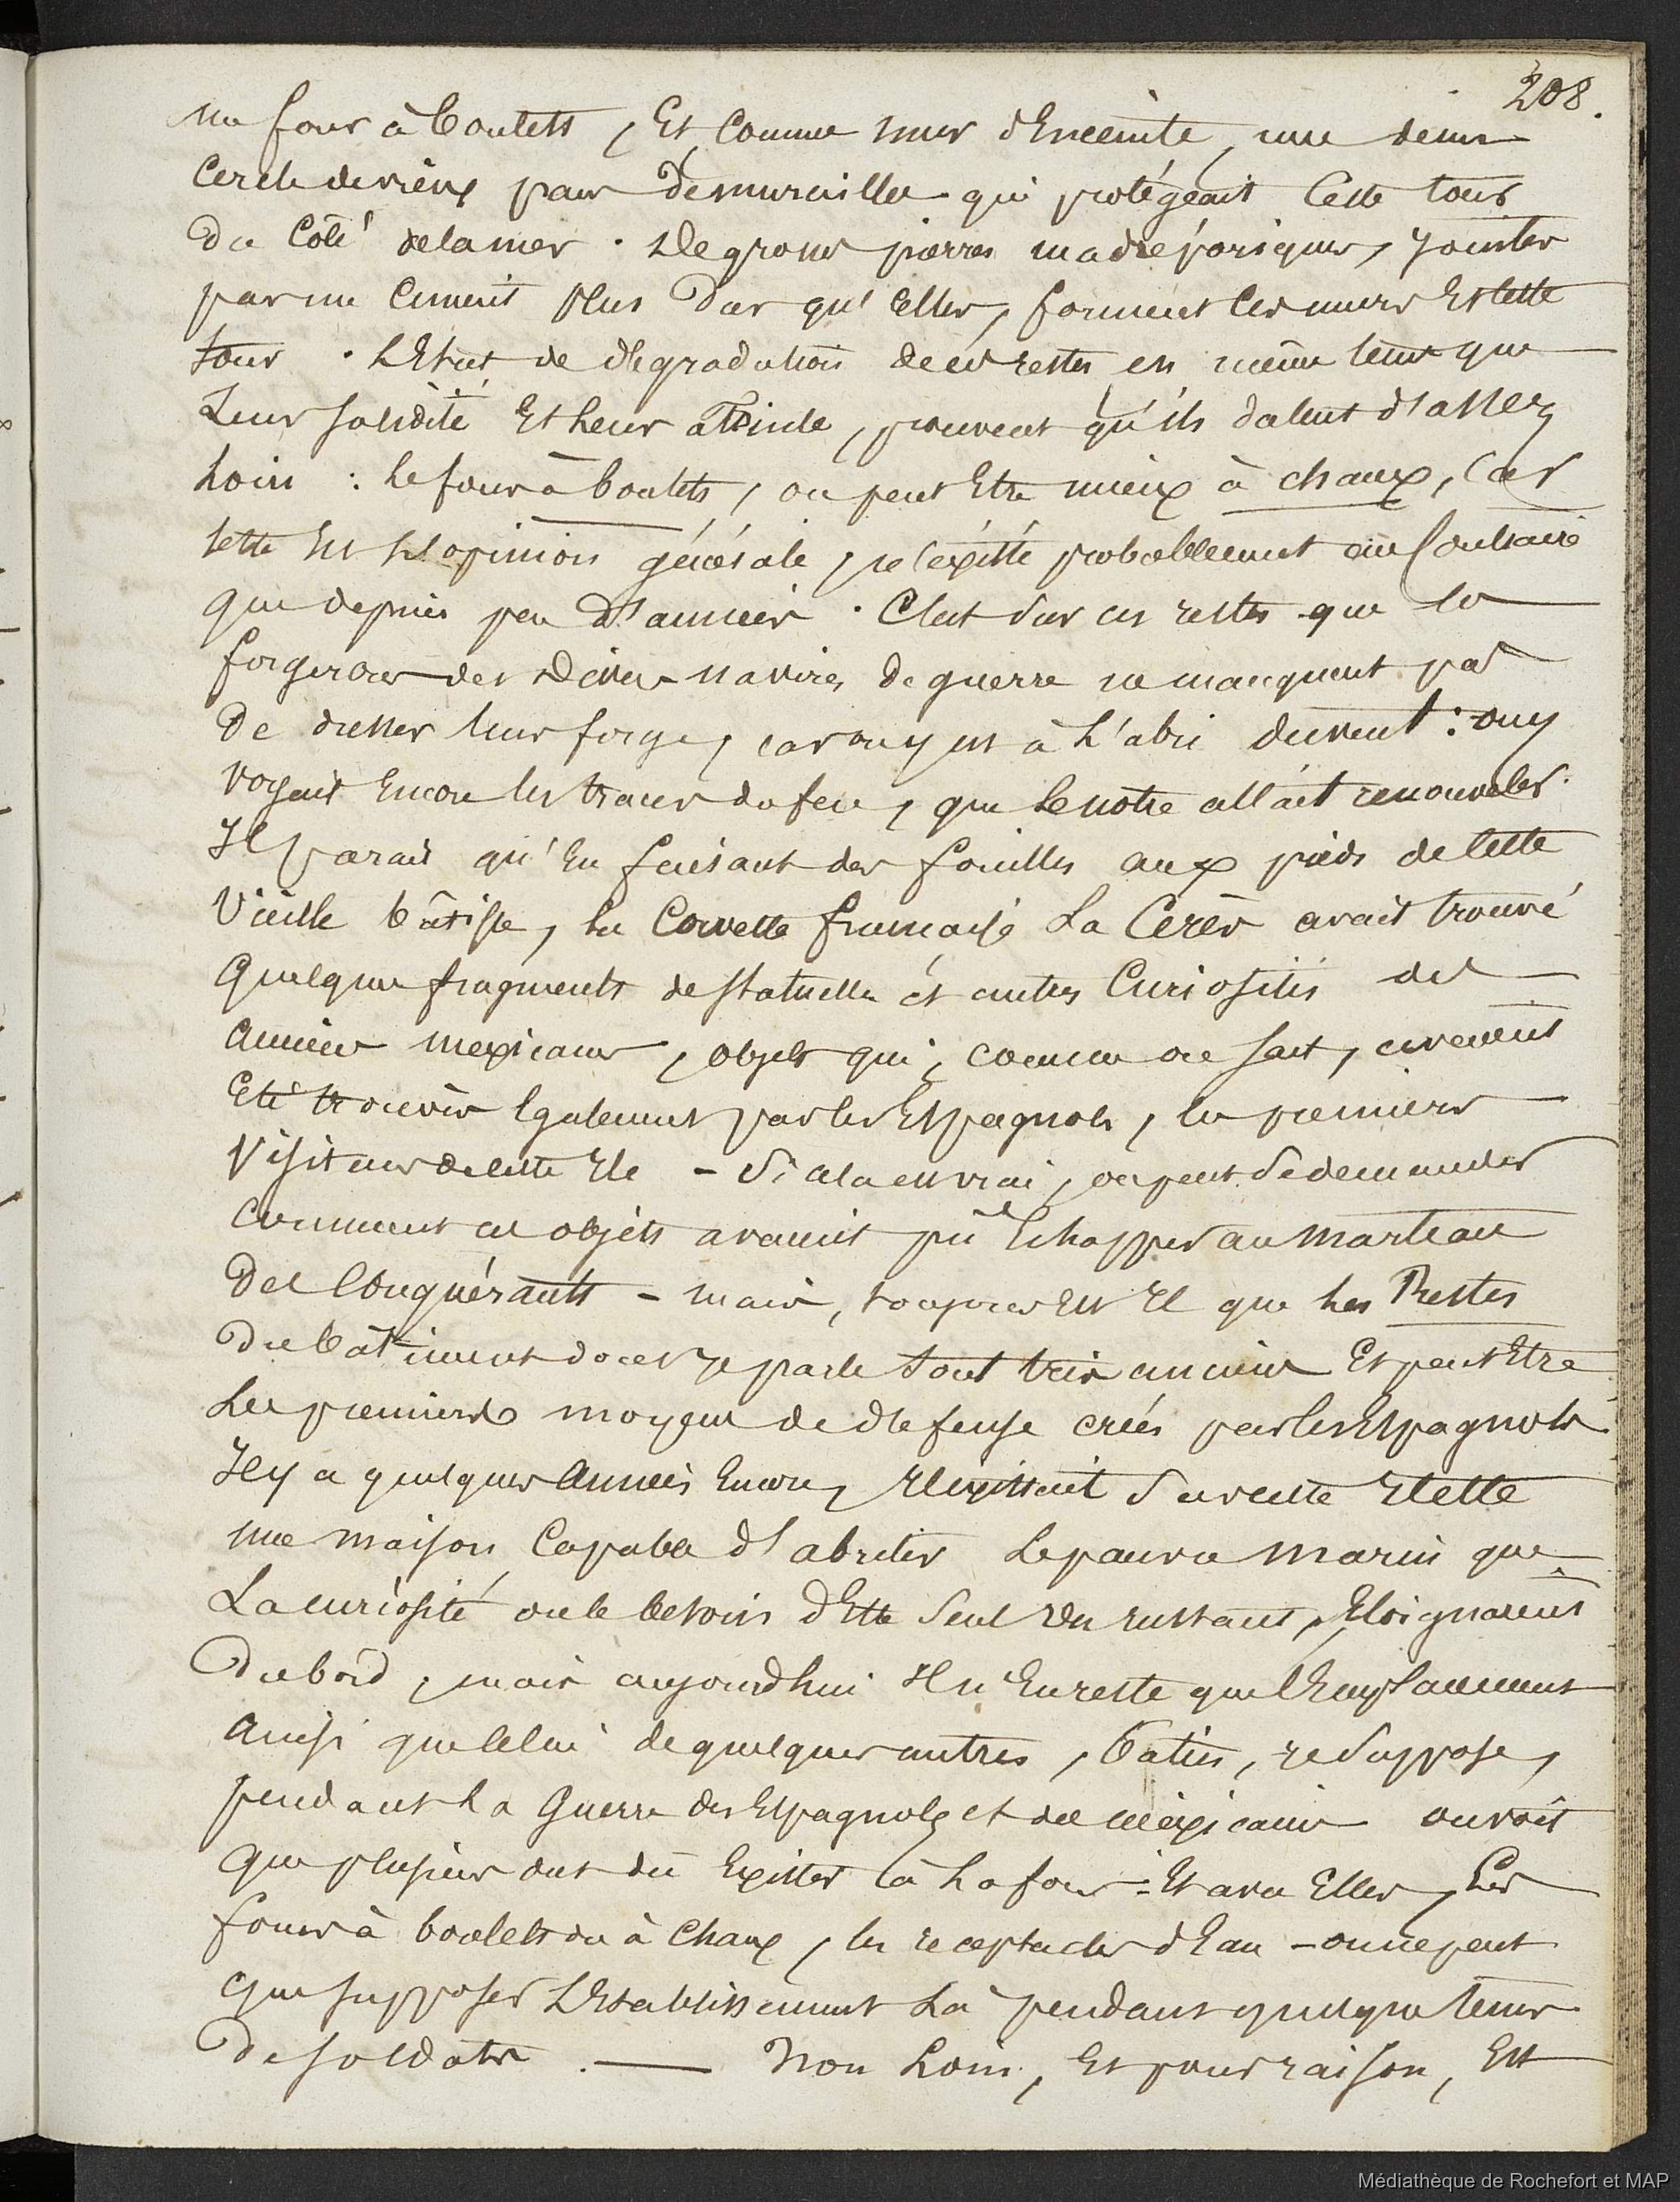 208.
un four à boulets, Et, Comme mur d'Enceinte, une demi
Cercle de vieux pans de murailles qui protégeait Cette tour
du Côté de la mer. De grosses pierres madréporiques, jointes
par un Ciment plus dur qu'elles, forment les murs Et cette
tour. L'Etat de dégradation de ces restes en même tems que
Leur Solidité Et Leur atteinte, prouvent qu'ils datent d'assez
Loin : Le four à boulets, ou peut Etre mieux à chaux, Car
cette Est L'opinion générale, n'existe probablement au Contraire
que depuis peu d'années. C'est Sur ces restes que les
forgerons des divers navires de guerre ne manquent pas
De dresser leur forge, car on y est à L'abri du vent : on y
voyait Encore les traces du feu, que Le notre allait renouveler.
Il parait qu'En faisant des fouilles aux pieds de Cette
Vieille bâtisse, la Corvette française La Cérès avait trouvé
Quelques fragments de statuettes et autres Curiosités des
anciens mexicains, objets qui, comme on sait, avaient
Eté trouvés Egalement par les Espagnols, les premiers
Visiteurs de cette Ile - Si cela est vrai, on peut Se demander
Comment ces objets avaient pu Echapper au marteau
Des Conquérants - mais, toujours Est Il que les Restes
Du bâtiment dont je parle Sont très anciens Et peut Etre
Les premiers moyens de défense créés par les Espagnols
Il y a quelques Années Encore, Il existait Sur cette Ilette
une maison Capable d'abriter Le pauvre marin que
La curiosité ou le besoin d'Etre Seul un instant, Eloignaient
Du bord, mais aujourd'hui Il n'En reste que l'Emplacement
Ainsi que Celui de quelques autres, baties, je Suppose,
pendant La Guerre des Espagnols et des méxicains on voit
Que plusieurs ont dû Exister à La fois - Et avec Elles, Les
fours à boulets ou à Chaux, les receptacles d'Eau - on ne peut
que supposer L'Etablissement Là pendant quelque tems
De soldats. — Non Loin, Et pour raison, Est
Médiathèque de Rochefort et MAP